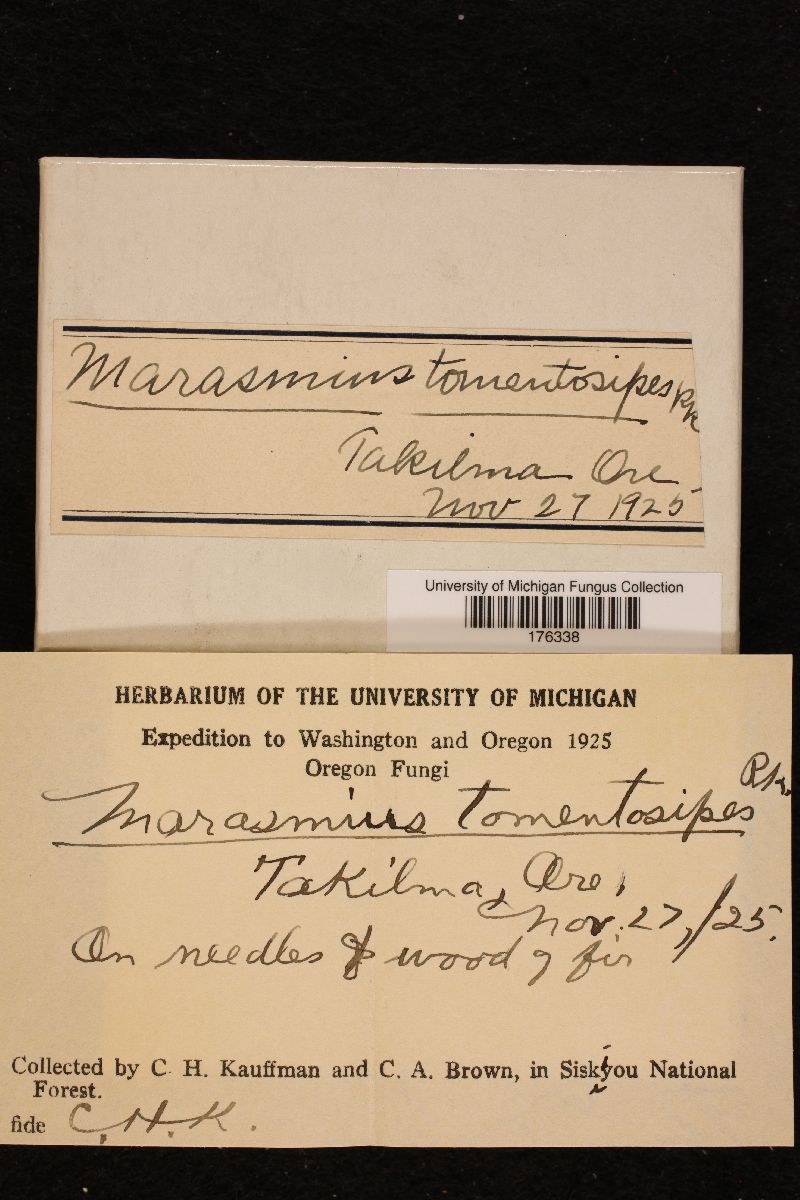 Marasmius tomentosipes Pk
Takilma Ore
Nov 27 1925
University of Michigan Fungus Collection
176338
HERBARIUM OF THE UNIVERSITY OF MICHIGAN
Expedition to Washington and Oregon 1925
Oregon Fungi
Marasmius tomentosipes Pk.
Takilma, Ore,
Nov. 27, /25.
On needles & wood of fir
Collected by C. H. Kauffman and C. A. Brown, in Siskiyou National
Forest.
fide C. H. K.